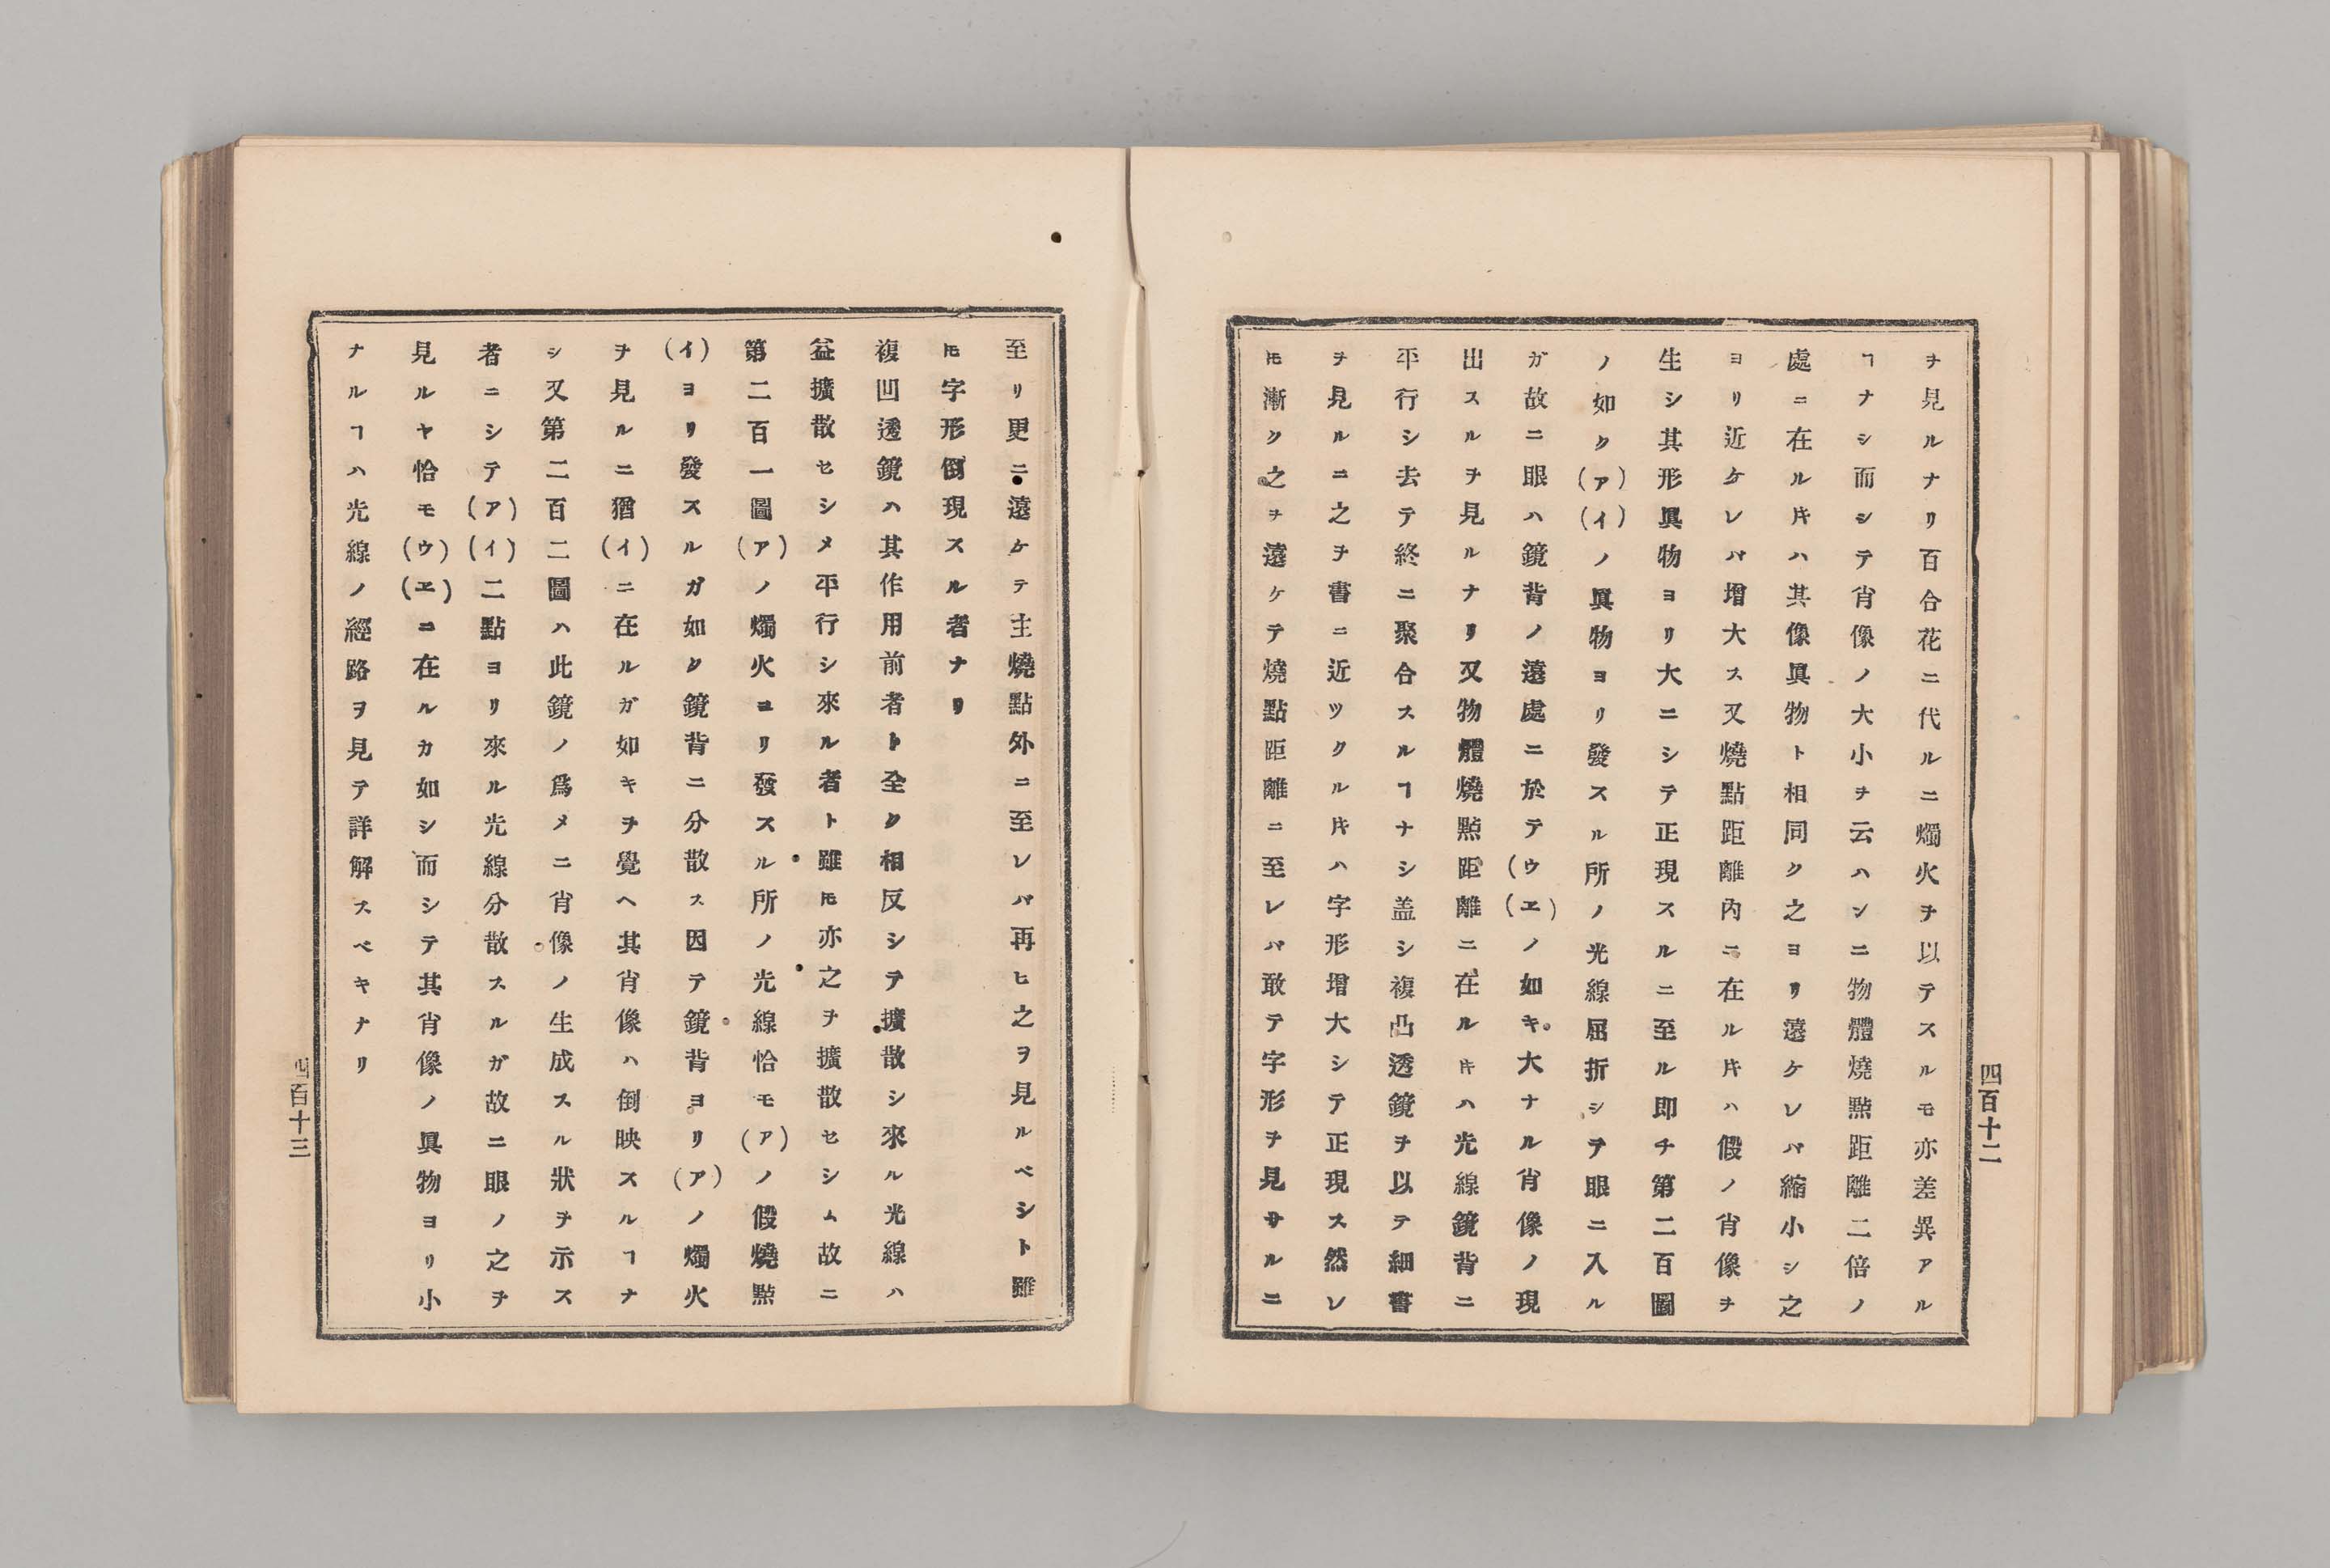 ヲ見ルナリ百合花ニ代ルニ燭火ヲ以テスルモ亦差異アル
ヿナシ而シテ肖像ノ大小ヲ云ハンニ物體燒點距離二倍ノ
處ニ在ル𪜈ハ其像眞物ト相同ク之ヨリ遠ケレバ縮小シ之
ヨリ近ケレバ增大ス又燒點距離內ニ在ル𪜈ハ假ノ肖像ヲ
生シ其形眞物ヨリ大ニシテ正現スルニ至ル即チ第二百圖
ノ如ク(ア)(イ)ノ眞物ヨリ發スル所ノ光線屈折シテ眼ニ入ル
ガ故ニ眼ハ鏡背ノ遠處ニ於テ(ウ)(エ)ノ如キ大ナル肖像ノ現
出スルヲ見ルナリ又物體燒點距離ニ在ルキハ光線鏡背ニ
平行シ去テ終ニ聚合スルヿナシ盖シ複凸透鏡ヲ以テ細書
ヲ見ルニ之ヲ書ニ近ツクルキハ字形增大シテ正現ス然レ
𪜈漸ク之ヲ遠ケテ燒點距離ニ至レバ敢テ字形ヲ見サルニ
四百十二
至リ更ニ遠ケテ主燒點外ニ至レバ再ヒ之ヲ見ルベシト雖
𪜈字形倒現スル者ナリ
複凹透鏡ハ其作用前者ト全ク相反シテ擴散シ來ル光線ハ
益擴散セシメ平行シ來ル者ト雖𪜈亦之ヲ擴散セシム故ニ
第二百一圖(ア)ノ燭火ヨリ發スル所ノ光線恰モ(ア)ノ假燒點
(イ)ヨリ發スルガ如ク鏡背ニ分散ス因テ鏡背ヨリ(ア)ノ燭火
ヲ見ルニ猶(イ)ニ在ルガ如キヲ覺ヘ其肖像ハ倒映スルヿナ
シ又第二百二圖ハ此鏡ノ爲メニ肖像ノ生成スル狀ヲ示ス
者ニシテ(ア)(イ)二點ヨリ來ル光線分散スルガ故ニ眼ノ之ヲ
見ルヤ恰モ(ウ)(エ)ニ在ルカ如シ而シテ其肖像ノ眞物ヨリ小
ナルヿハ光線ノ經路ヲ見テ詳解スベキナリ
四百十三